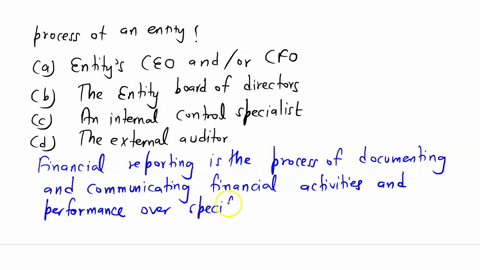 process of an entity?
(a) Entity's CEO and/or CFO
(b) The Entity board of directors
(c) An internal control specialist
(d) The external auditor
Financial reporting is the process of documenting
and communicating financial activities and
performance over specif